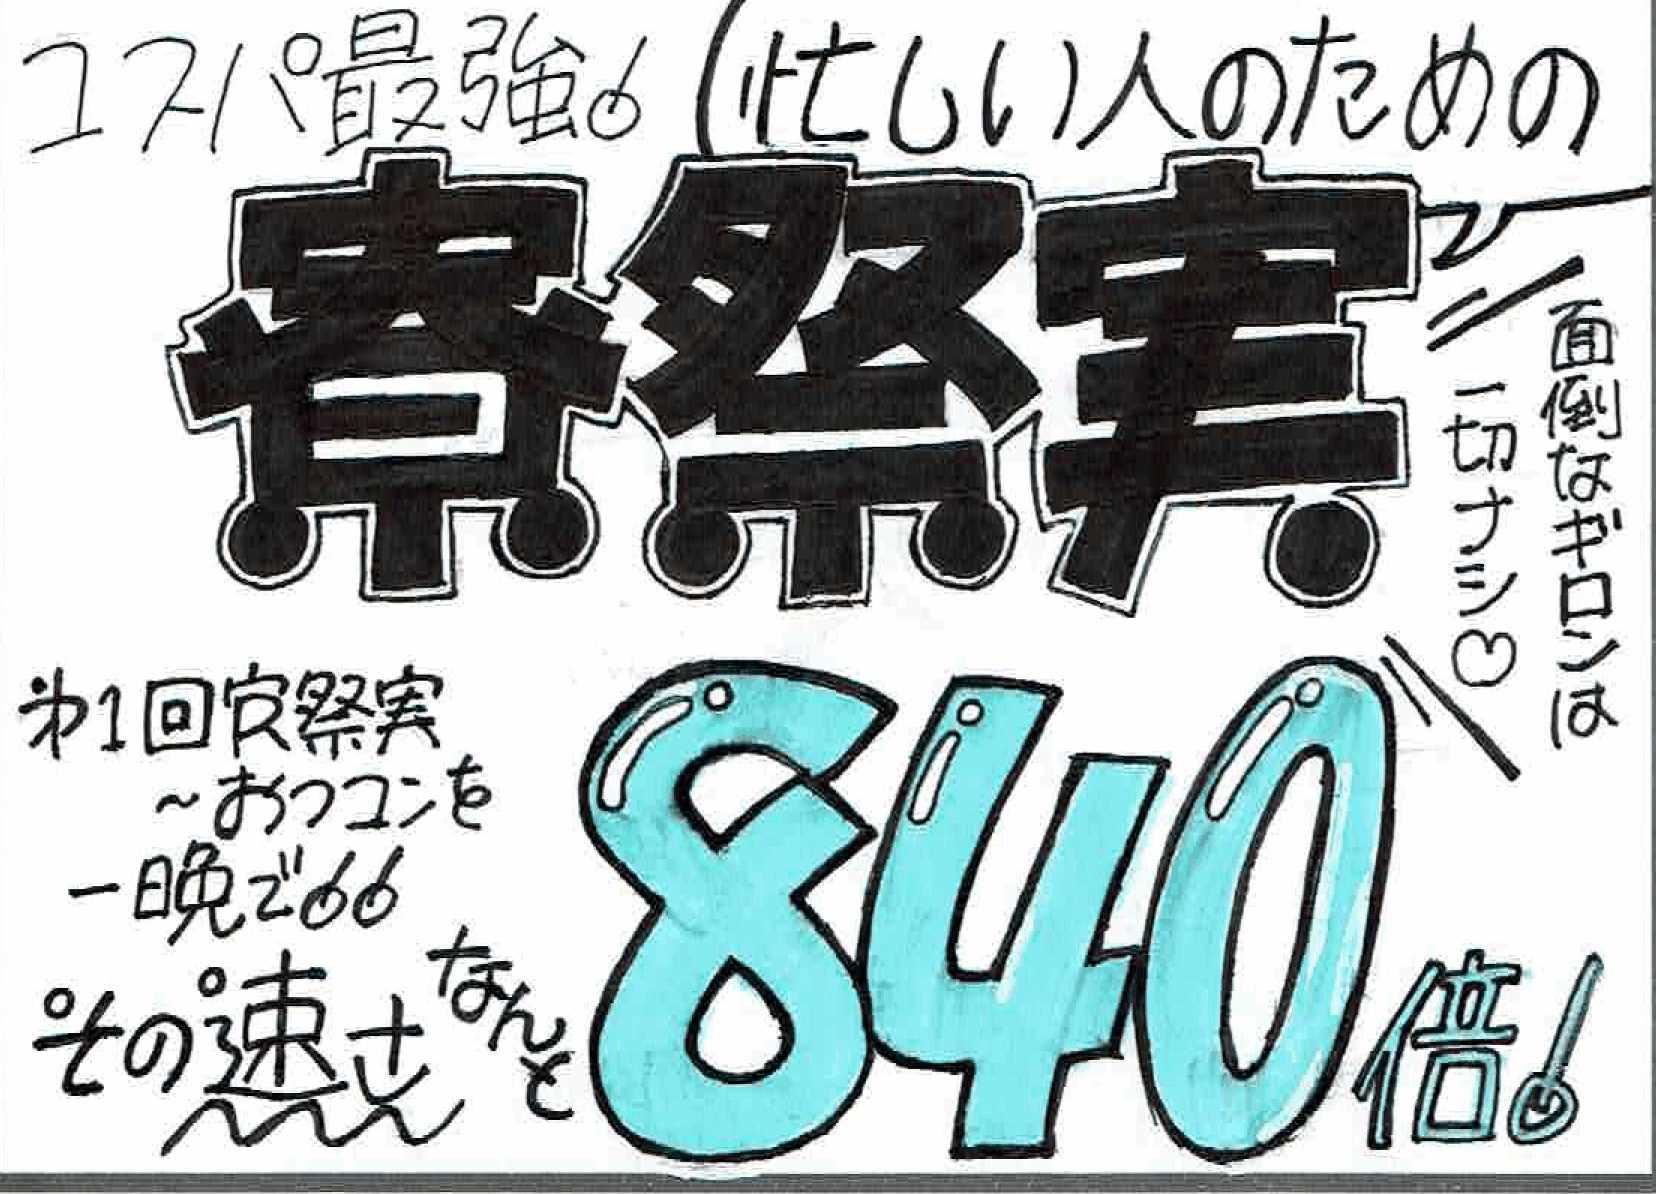 コスパ最強!
(忙しい人のための
寮祭実
面倒なギロンは
一切ナシ♡
第1回寮祭実
~おつコンを
一晩で!!
その速さ
なんと
840倍!